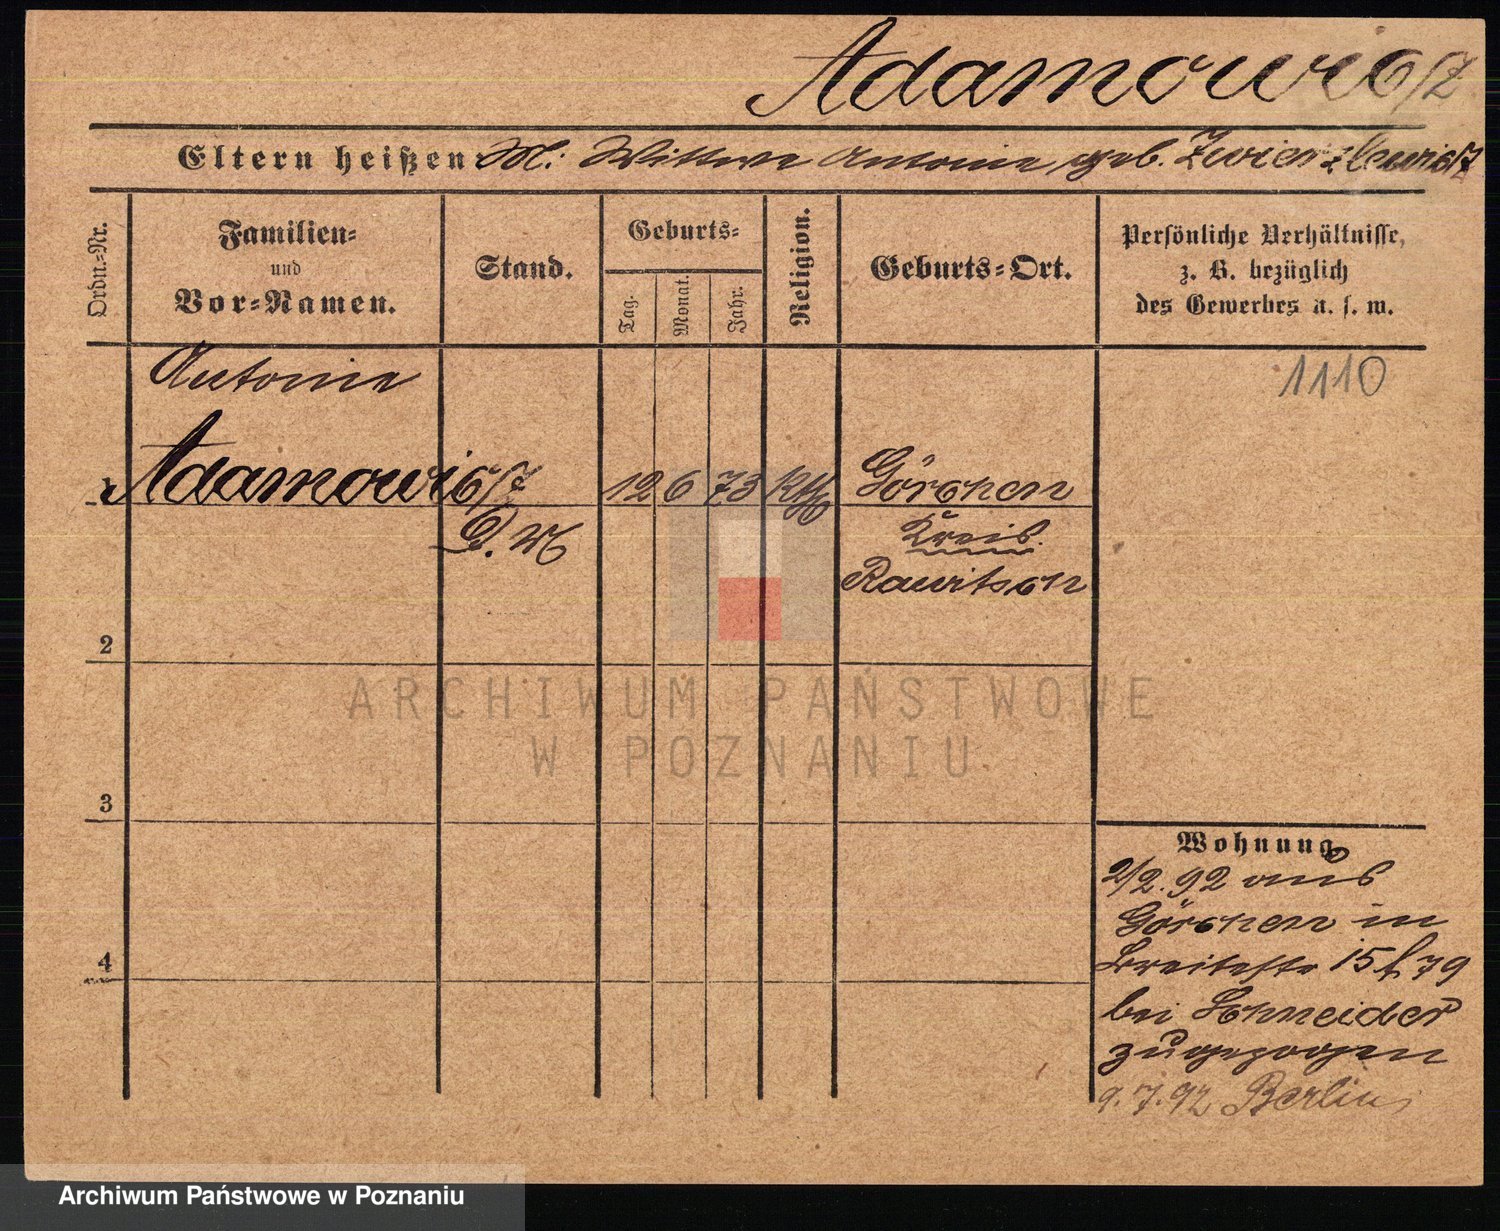 Adamowicz
Eltern heißen: M: Wittwe Antonie geb.
Ordn.-Nr.
Familien-
und
Vor-Namen.
Stand.
Geburts-
Tag.
Monat.
Jahr.
Religion.
Geburts-Ort.
Persönliche Verhältnisse,
z. B. bezüglich
des Gewerbes u. s. w.
1110
Antonie
1 Adamowicz 12 6 73 kth Görchen
D. M Kreis
Rawitsch
2
ARCHIWUM PAŃSTWOWE
W POZNANIU
3
Wohnung
2/2. 92 aus
Görchen in
Breitestr 15 f 79
bei Schneider
zugezogen
9.7.92 Berlin
4
Archiwum Państwowe w Poznaniu